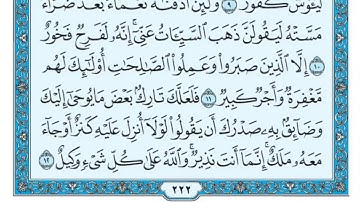 لَيَـُٔوسٌ كَفُورٌ ٩ وَلَئِنْ أَذَقْنَٰهُ نَعْمَآءَ بَعْدَ ضَرَّآءَ
مَسَّتْهُ لَيَقُولَنَّ ذَهَبَ ٱلسَّيِّـَٔاتُ عَنِّىٓ إِنَّهُۥ لَفَرِحٌ فَخُورٌ
١٠ إِلَّا ٱلَّذِينَ صَبَرُوا۟ وَعَمِلُوا۟ ٱلصَّٰلِحَٰتِ أُو۟لَٰٓئِكَ لَهُم
مَّغْفِرَةٌ وَأَجْرٌ كَبِيرٌ ١١ فَلَعَلَّكَ تَارِكٌۢ بَعْضَ مَا يُوحَىٰٓ إِلَيْكَ
وَضَآئِقٌۢ بِهِۦ صَدْرُكَ أَن يَقُولُوا۟ لَوْلَآ أُنزِلَ عَلَيْهِ كَنزٌ أَوْ جَآءَ
مَعَهُۥ مَلَكٌ إِنَّمَآ أَنتَ نَذِيرٌ وَٱللَّهُ عَلَىٰ كُلِّ شَىْءٍ وَكِيلٌ ١٢
٢٢٢